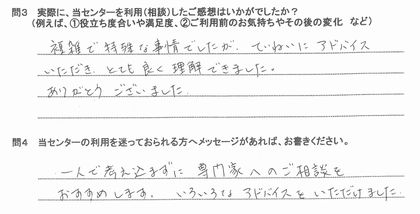 問3 実際に、当センターを利用(相談)したご感想はいかがでしたか？
(例えば、①役立ち度合いや満足度、②ご利用前のお気持ちやその後の変化 など)
複雑で特殊な事情でしたが、ていねいにアドバイス
いただき、とても良く理解できました。
ありがとうございました。
問4 当センターの利用を迷っておられる方へメッセージがあれば、お書きください。
一人で考え込まずに専門家へのご相談を
おすすめします。いろいろなアドバイスをいただけました。